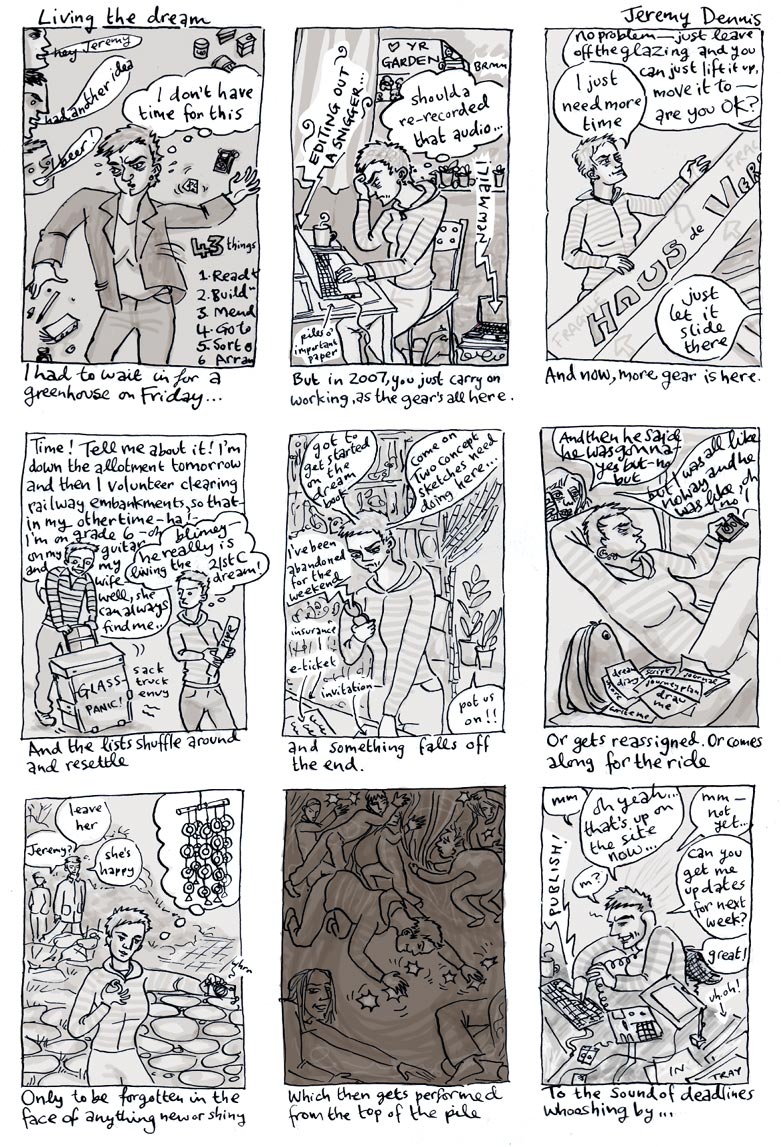 Living the dream
Jeremy Dennis
hey Jeremy
had another idea
beer!
I don't have
time for this
43 things
1. Read
2. Build
3. Mend
4. Go to
5. Sort o
6 Arran
I had to wait in for a
greenhouse on Friday...
EDITING OUT
A SNIGGER...
♥ YR
GARDEN
BRMM
shoulda
re-recorded
that audio...
NEW MAIL!
piles o'
important
paper
But in 2007, you just carry on
working, as the gear's all here.
no problem - just leave
off the glazing and you
can just lift it up,
move it to —
are you OK?
I just
need more
time
FRAGILE
HAUS de VER
FRAG
just
let it
slide
there
And now, more gear is here.
Time! Tell me about it! I'm
down the allotment tomorrow
and then I volunteer clearing
railway embankments, so that
in my other time - ha! -
I'm on grade 6 - oh
on my guitar
and my
wife
well, she
can always
find me..
blimey
he really is
living the 21st C
dream!
GLASS-
PANIC!
sack
truck
envy
And the lists shuffle around
and resettle
got to
get started
on the
dream
book
come on
Two concept
sketches need
doing here...
I've been
abandoned
for the
weekend
insurance
e-ticket
invitation
pot us
on!!
and something falls off
the end.
And then he said
he was gonna
yes but-no
but
but I was all like
no way and he
was like, oh
no!
dream
diary
script
journal
journey plan
draw
me
write me
Or gets reassigned. Or comes
along for the ride
leave
her
Jeremy?
she's
happy
Only to be forgotten in the
face of anything new or shiny
Which then gets performed
from the top of the pile
mm
oh yeah...
that's up on
the site
now...
mm—
not
yet...
PUBLISH!
m?
can you
get me
updates
for next
week?
great!
uh.oh!
IN
TRAY
To the sound of deadlines
whooshing by...